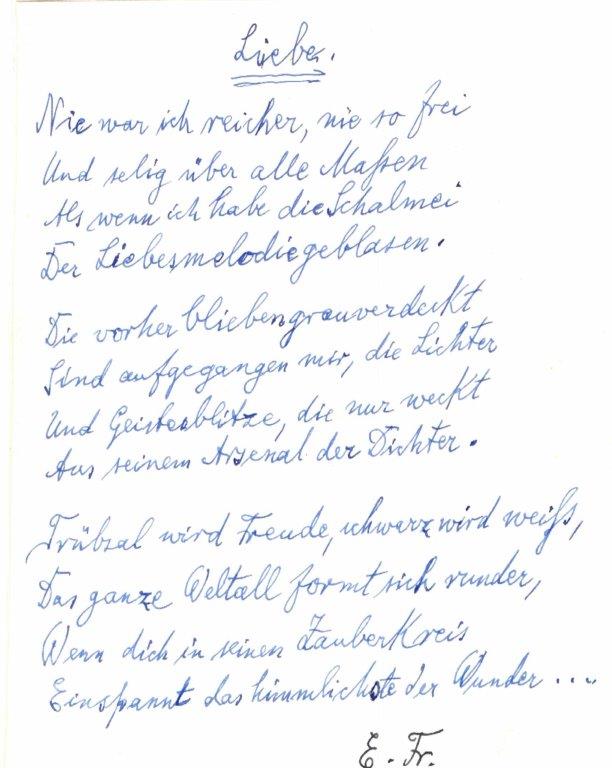 Liebe.
Nie war ich reicher, nie so frei
Und selig über alle Maßen
Als wenn ich habe die Schalmei
Der Liebesmelodie geblasen.
Die vorher blieben grauverdeckt
Sind aufgegangen mir, die Lichter
Und Geistesblitze, die nur weckt
Aus seinem Arsenal der Dichter.
Trübsal wird Freude, schwarz wird weiß,
Das ganze Weltall formt sich runder,
Wenn dich in seinen Zauberkreis
Einspannt das himmlichste der Wunder ....
E. Fr.